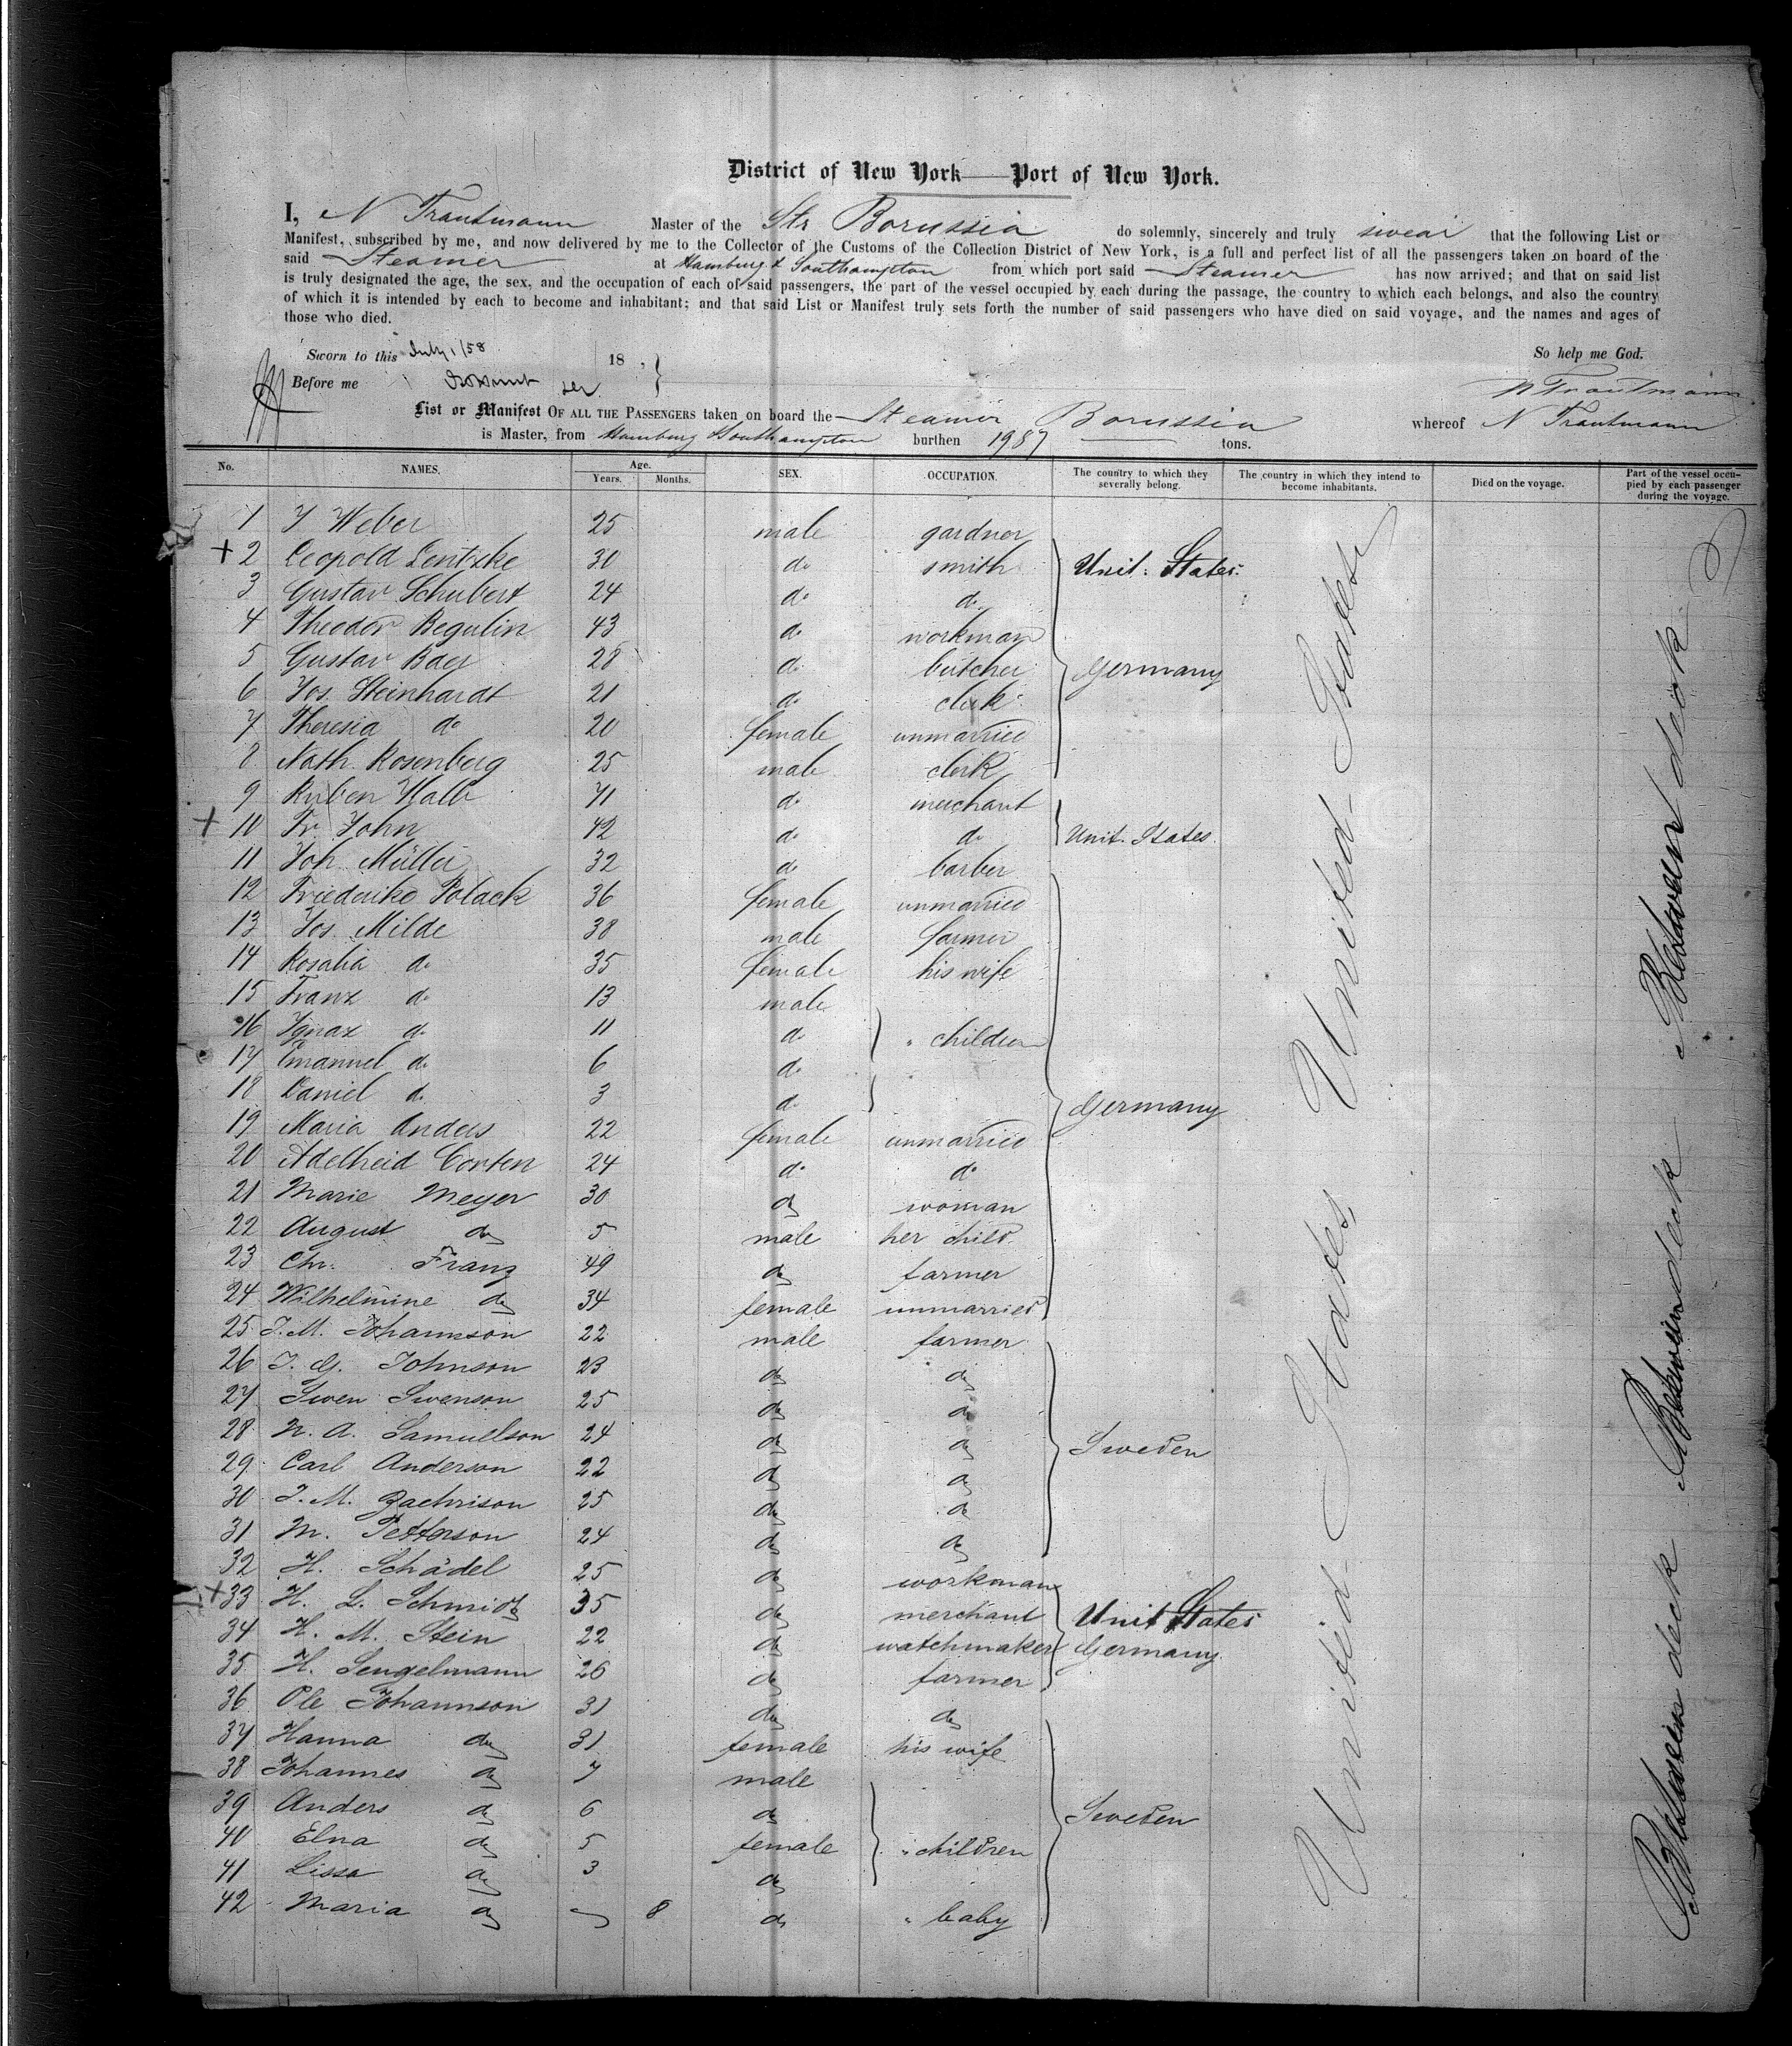 District of New York — Port of New York.
I, N Trautmann Master of the Str Borussia do solemnly, sincerely and truly swear that the following List or
Manifest, subscribed by me, and now delivered by me to the Collector of the Customs of the Collection District of New York, is a full and perfect list of all the passengers taken on board of the
said Steamer at Hamburg & Southampton from which port said Steamer has now arrived; and that on said list
is truly designated the age, the sex, and the occupation of each of said passengers, the part of the vessel occupied by each during the passage, the country to which each belongs, and also the country
of which it is intended by each to become and inhabitant; and that said List or Manifest truly sets forth the number of said passengers who have died on said voyage, and the names and ages of
those who died.
Sworn to this July 1/58 18 , So help me God.
Before me N Trautmann
List or Manifest OF ALL THE PASSENGERS taken on board the Steamer Borussia whereof N Trautmann
is Master, from Hamburg Southampton burthen 1987 tons.
No. NAMES. Age. Years. Months. SEX. OCCUPATION. The country to which they severally belong. The country in which they intend to become inhabitants. Died on the voyage. Part of the vessel occupied by each passenger during the voyage.
1 J Weber 25 male gardner
+ 2 Leopold Lentzke 30 do smith Unit. States.
3 Gustav Schubert 24 do do
4 Theodor Begulin 43 do workman
5 Gustav Baer 28 do butcher Germany
6 Jos. Steinhardt 21 do clerk
7 Theresia do 20 female unmarried
8 Nath. Rosenberg 25 male clerk
9 Ruben Halb 71 do merchant
+ 10 Fr. John 42 do do Unit. States.
11 Joh. Müller 32 do barber
12 Friederike Polack 36 female unmarried
13 Jos. Milde 38 male farmer
14 Rosalia do 35 female his wife
15 Franz do 13 male
16 Ignaz do 11 do " children
17 Emanuel do 6 do
18 Daniel do 3 do Germany
19 Maria Anders 22 female unmarried
20 Adelheid Corten 24 do do
21 Marie Meyer 30 do woman
22 August do 5 male her child
23 Chr. Franz 49 do farmer
24 Wilhelmine do 34 female unmarried
25 J. M. Johannson 22 male farmer
26 J. G. Johnson 23 do do
27 Swen Swenson 25 do do
28 N. A. Samuelson 24 do do Sweden
29 Carl Anderson 22 do do
30 J. M. Zachrison 25 do do
31 M. Petterson 24 do do
32 H. Schädel 25 do workman
+ 33 H. L. Schmidt 35 do merchant Unit States
34 H. M. Stein 22 do watchmaker Germany
35 H. Lengelmann 26 do farmer
36 Ole Johannson 31 do do
37 Hanna do 31 female his wife
38 Johannes do 7 male
39 Anders do 6 do Sweden
40 Elna do 5 female " children
41 Lissa do 3 do
42 Maria do 8 do " baby
United States United States
Between deck Between deck Between deck